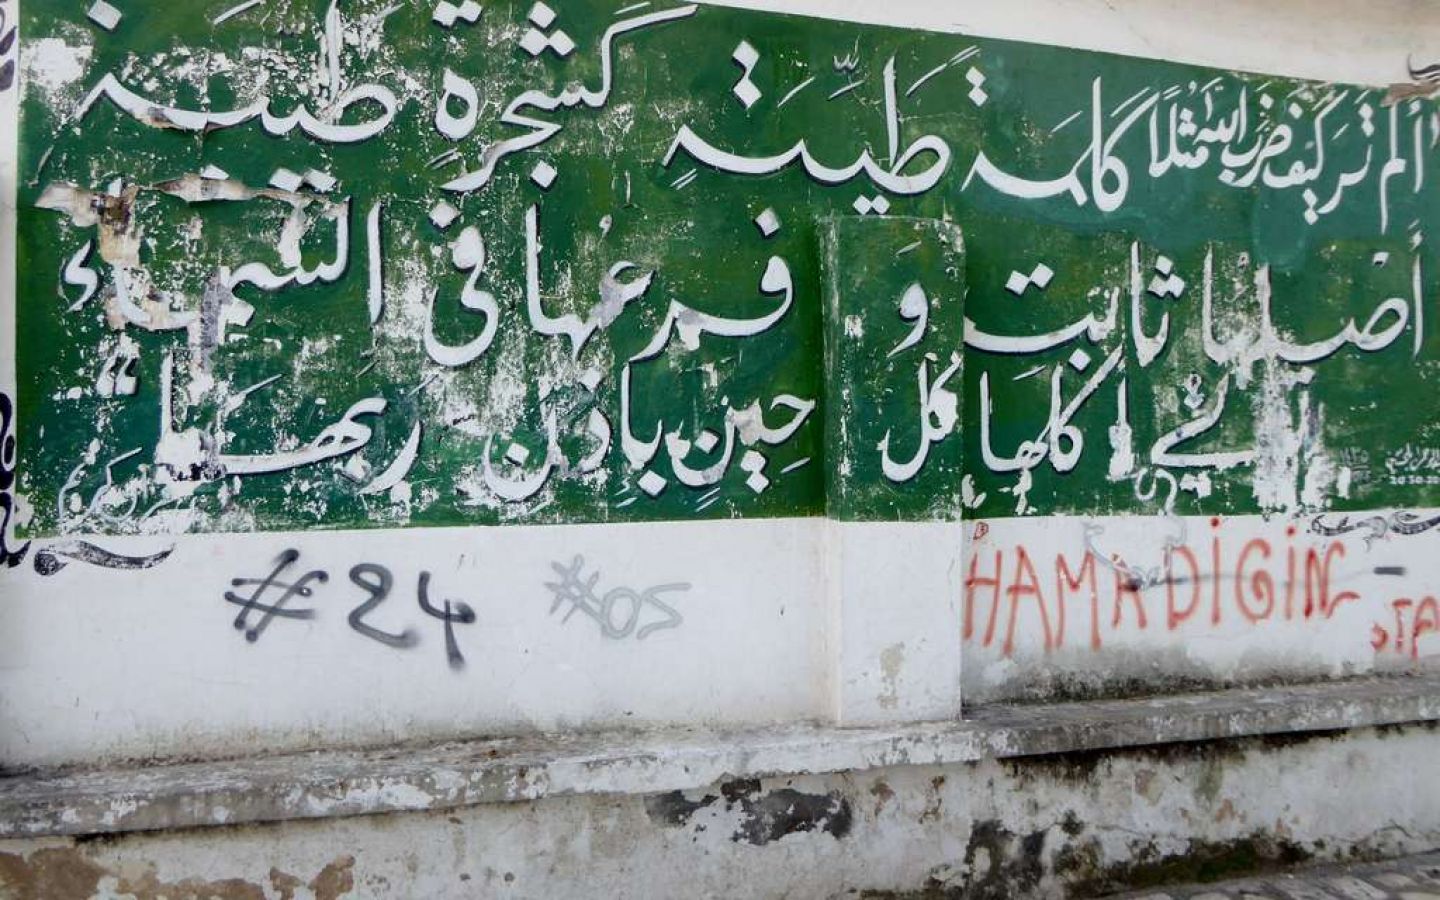 ألم تر كيف ضرب الله مثلاً كلمة طيّبة كشجرة طيبة
أصلها ثابت و فرعها في السماء
أكلها كل حينٍ بإذن ربها
#24
#OS
HAMA DIGIN